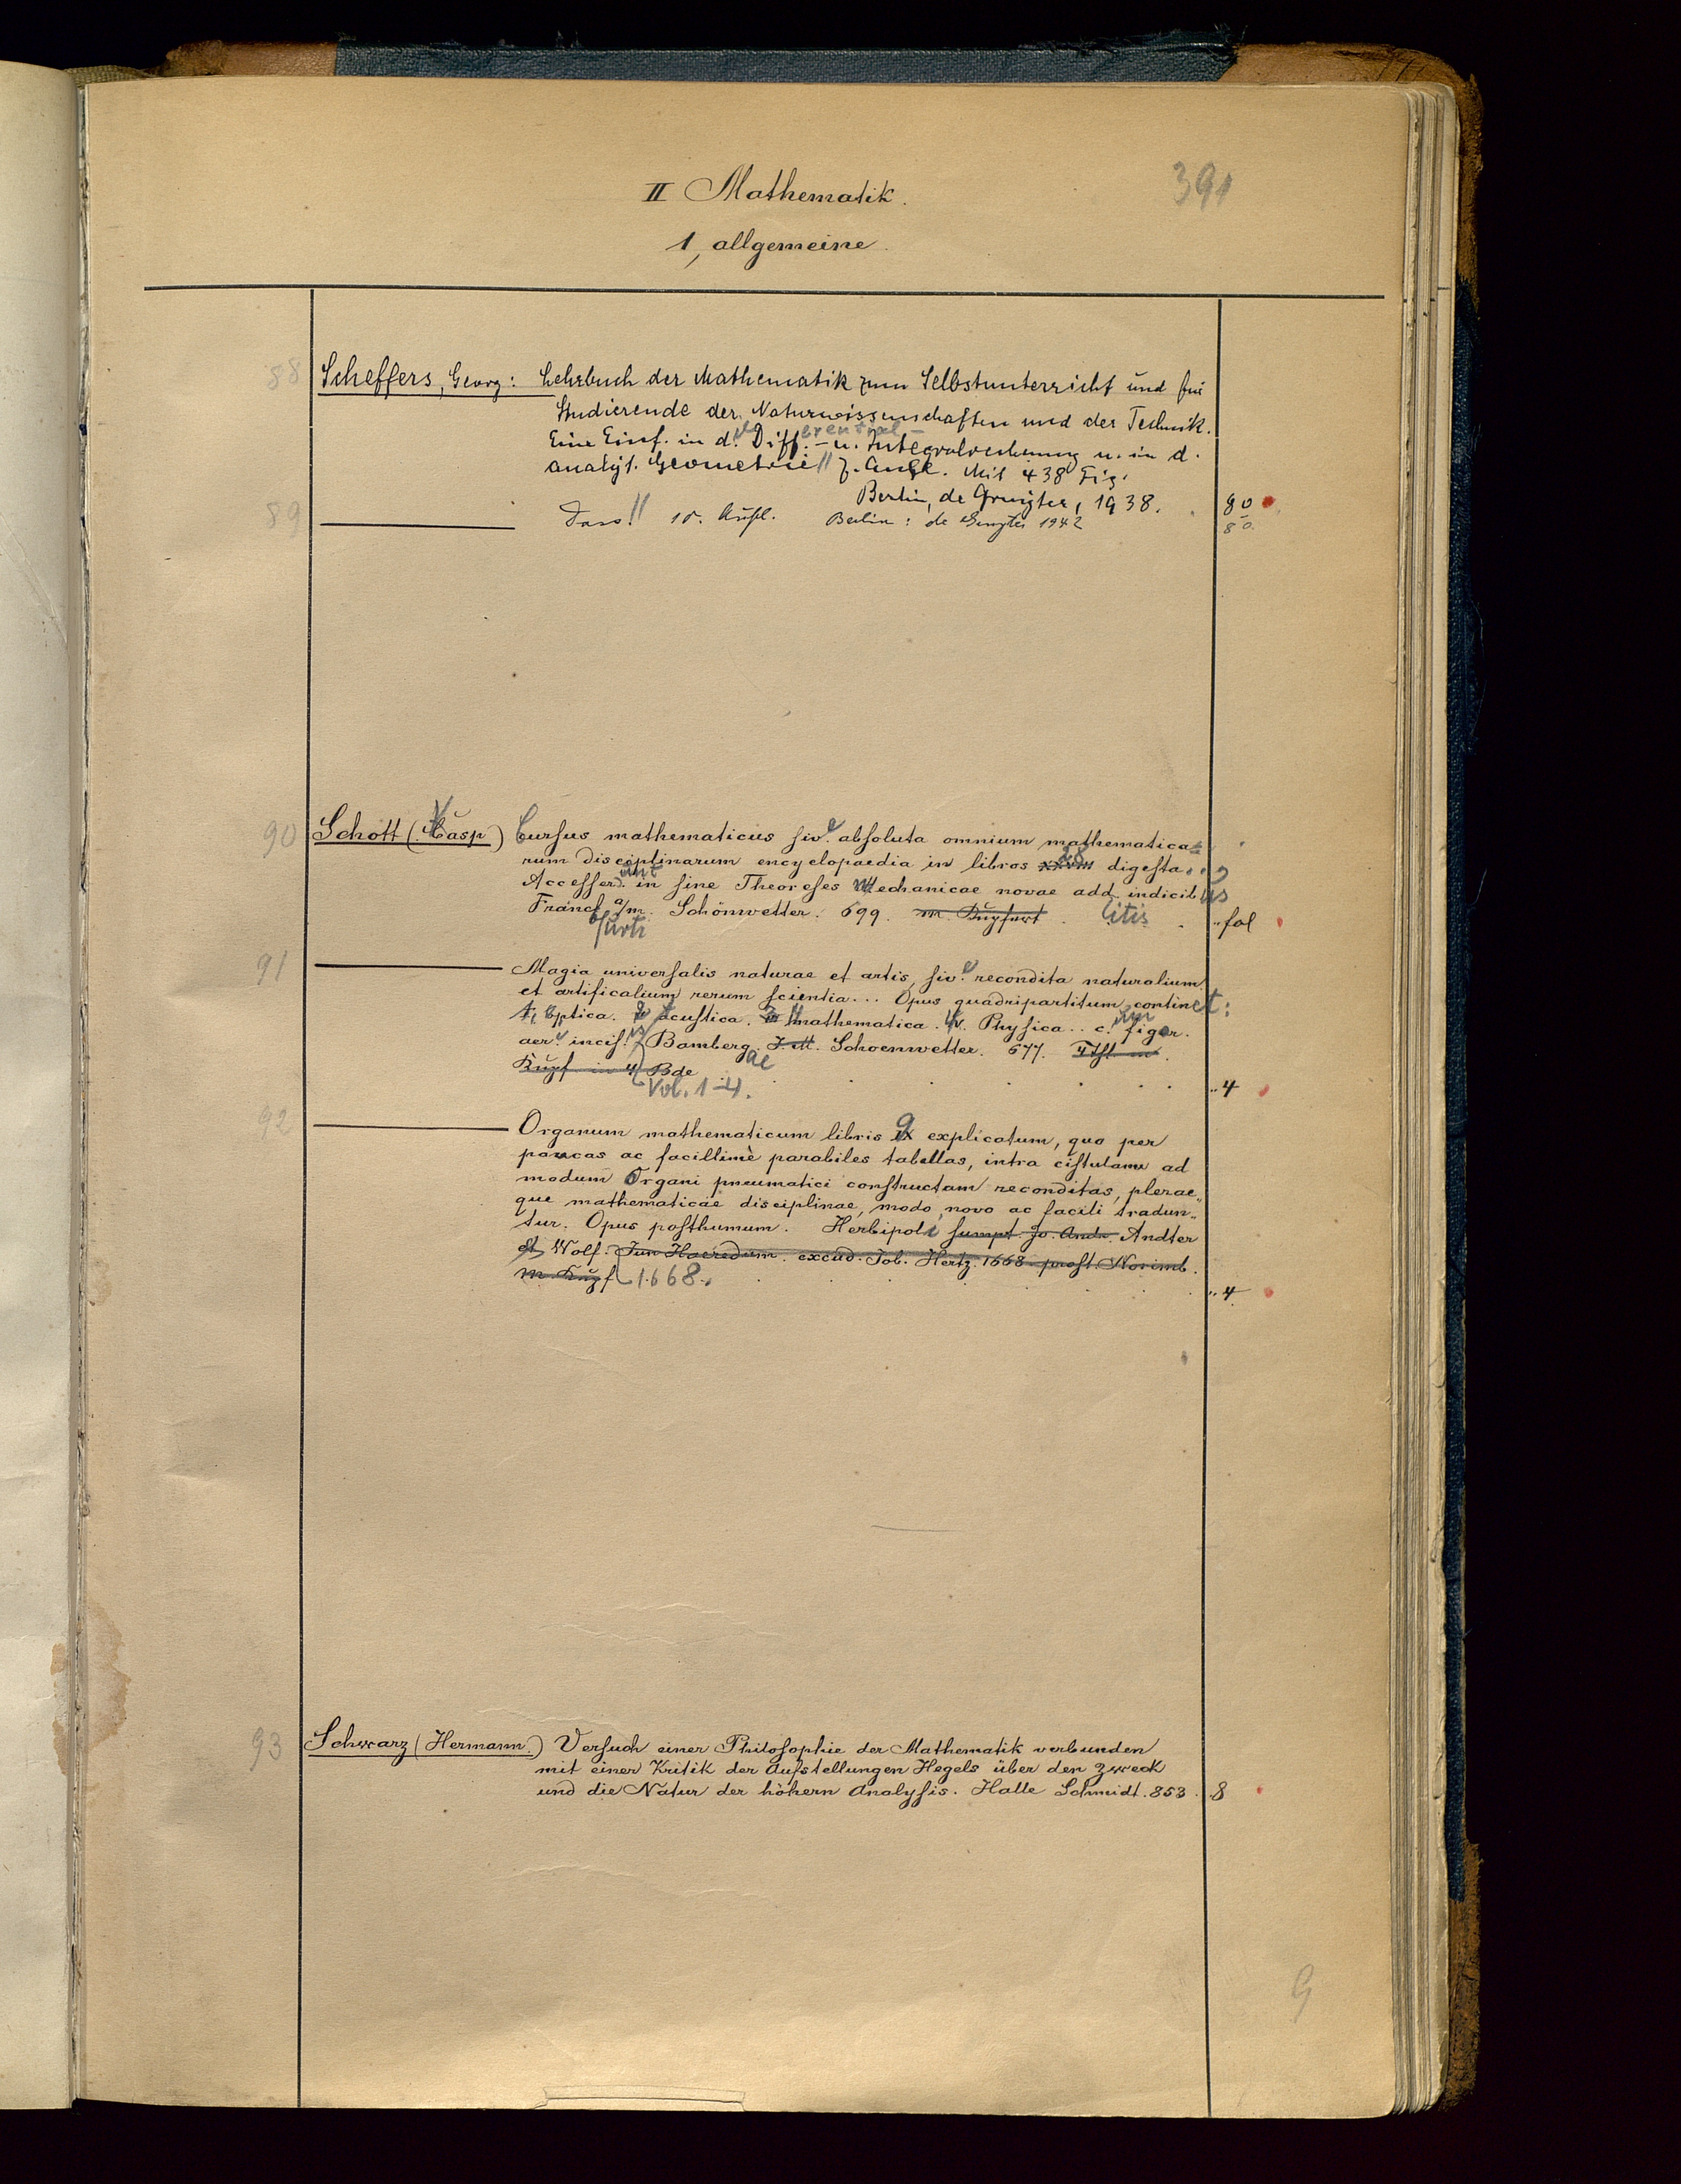 391
II Mathematik.
1, allgemeine.
88 Scheffers, Georg: Lehrbuch der Mathematik zum Selbstunterricht und für
Studierende der Naturwissenschaften und der Technik.
Eine Einf. in d. Differential- u. Integralrechnung u. in d.
analyt. Geometrie // 7. Aufl. Mit 438 Fig.
Berlin, de Gruyter, 1938. 80
89 Dass. // 10. Aufl. Berlin: de Gruyter 1942 80.
90 Schott (Kasp) Cursus mathematicus sive absoluta omnium mathematica=
rum disciplinarum encyclopaedia in libros 28 digesta...
Accesserunt in fine Theoreses Mechanicae novae add. indicib us
Francf a/m. Schönwetter. 699. m. Kupfert litis .. fol
furti
91 Magia universalis naturae et artis, sive recondita naturalium
et artificalium rerum scientia... Opus quadripartitum continet:
1, Optica. 2 Acustica. 3 Mathematica. 4. Physica.. c. figur.
aer. incis. Bamberg. J. M. Schoenwetter. 677. 4 Thl. m.
Kupf in 4 Bde
Vol. 1-4. .. 4
92 Organum mathematicum libris 9 explicatum, quo per
paucas ac facillimè parabiles tabellas, intra cistulam ad
modum Organi pneumatici constructam reconditas, plerae„
que mathematicae disciplinae, modo novo ac facili tradun„
tur. Opus posthumum. Herbipoli sumpt. Jo. Andr. Andter
et Wolf. Jun Haeredum. excud. Job. Hertz. 1668 prost. Norimb.
m. Kupf 1668. .. 4
93 Schwarz (Hermann.) Versuch einer Philosophie der Mathematik verbunden
mit einer Kritik der Aufstellungen Hegels über den Zweck
und die Natur der höhern Analysis. Halle Schmidt. 853. 8
9